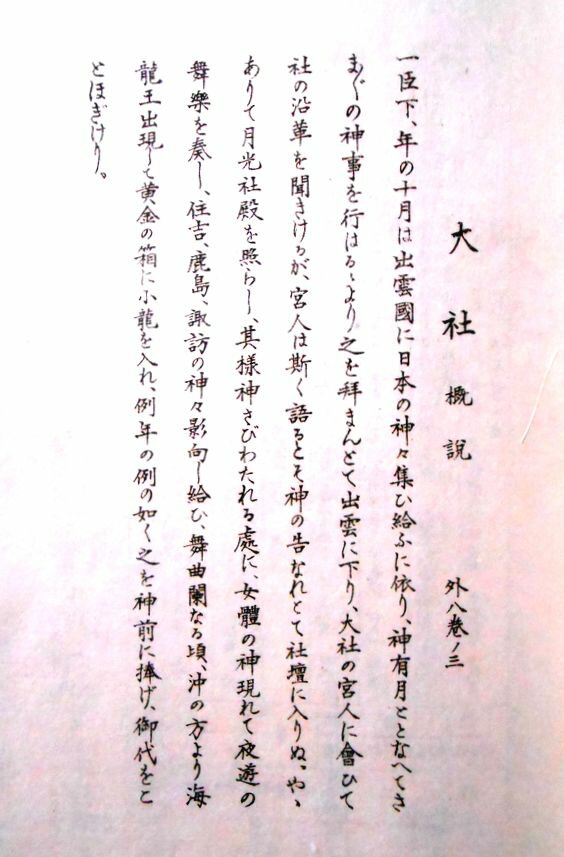 大社 概説 外八巻ノ三
一臣下、年の十月は出雲國に日本の神々集ひ給ふに依り、神有月ととなへてさ
まぐの神事を行はるゝより之を拜まんとて出雲に下り、大社の宮人に會ひて
社の沿革を聞きけるが、宮人は斯く語るとそ神の告なれとて社壇に入りぬ、やゝ
ありて月光社殿を照らし、其樣神さびわたれる處に、女體の神現れて夜遊の
舞樂を奏し、住吉、鹿島、諏訪の神々影向し給ひ、舞曲闌なる頃、沖の方より海
龍王出現して黄金の箱に小龍を入れ、例年の例の如く之を神前に捧げ、御代をこ
とほぎけり。